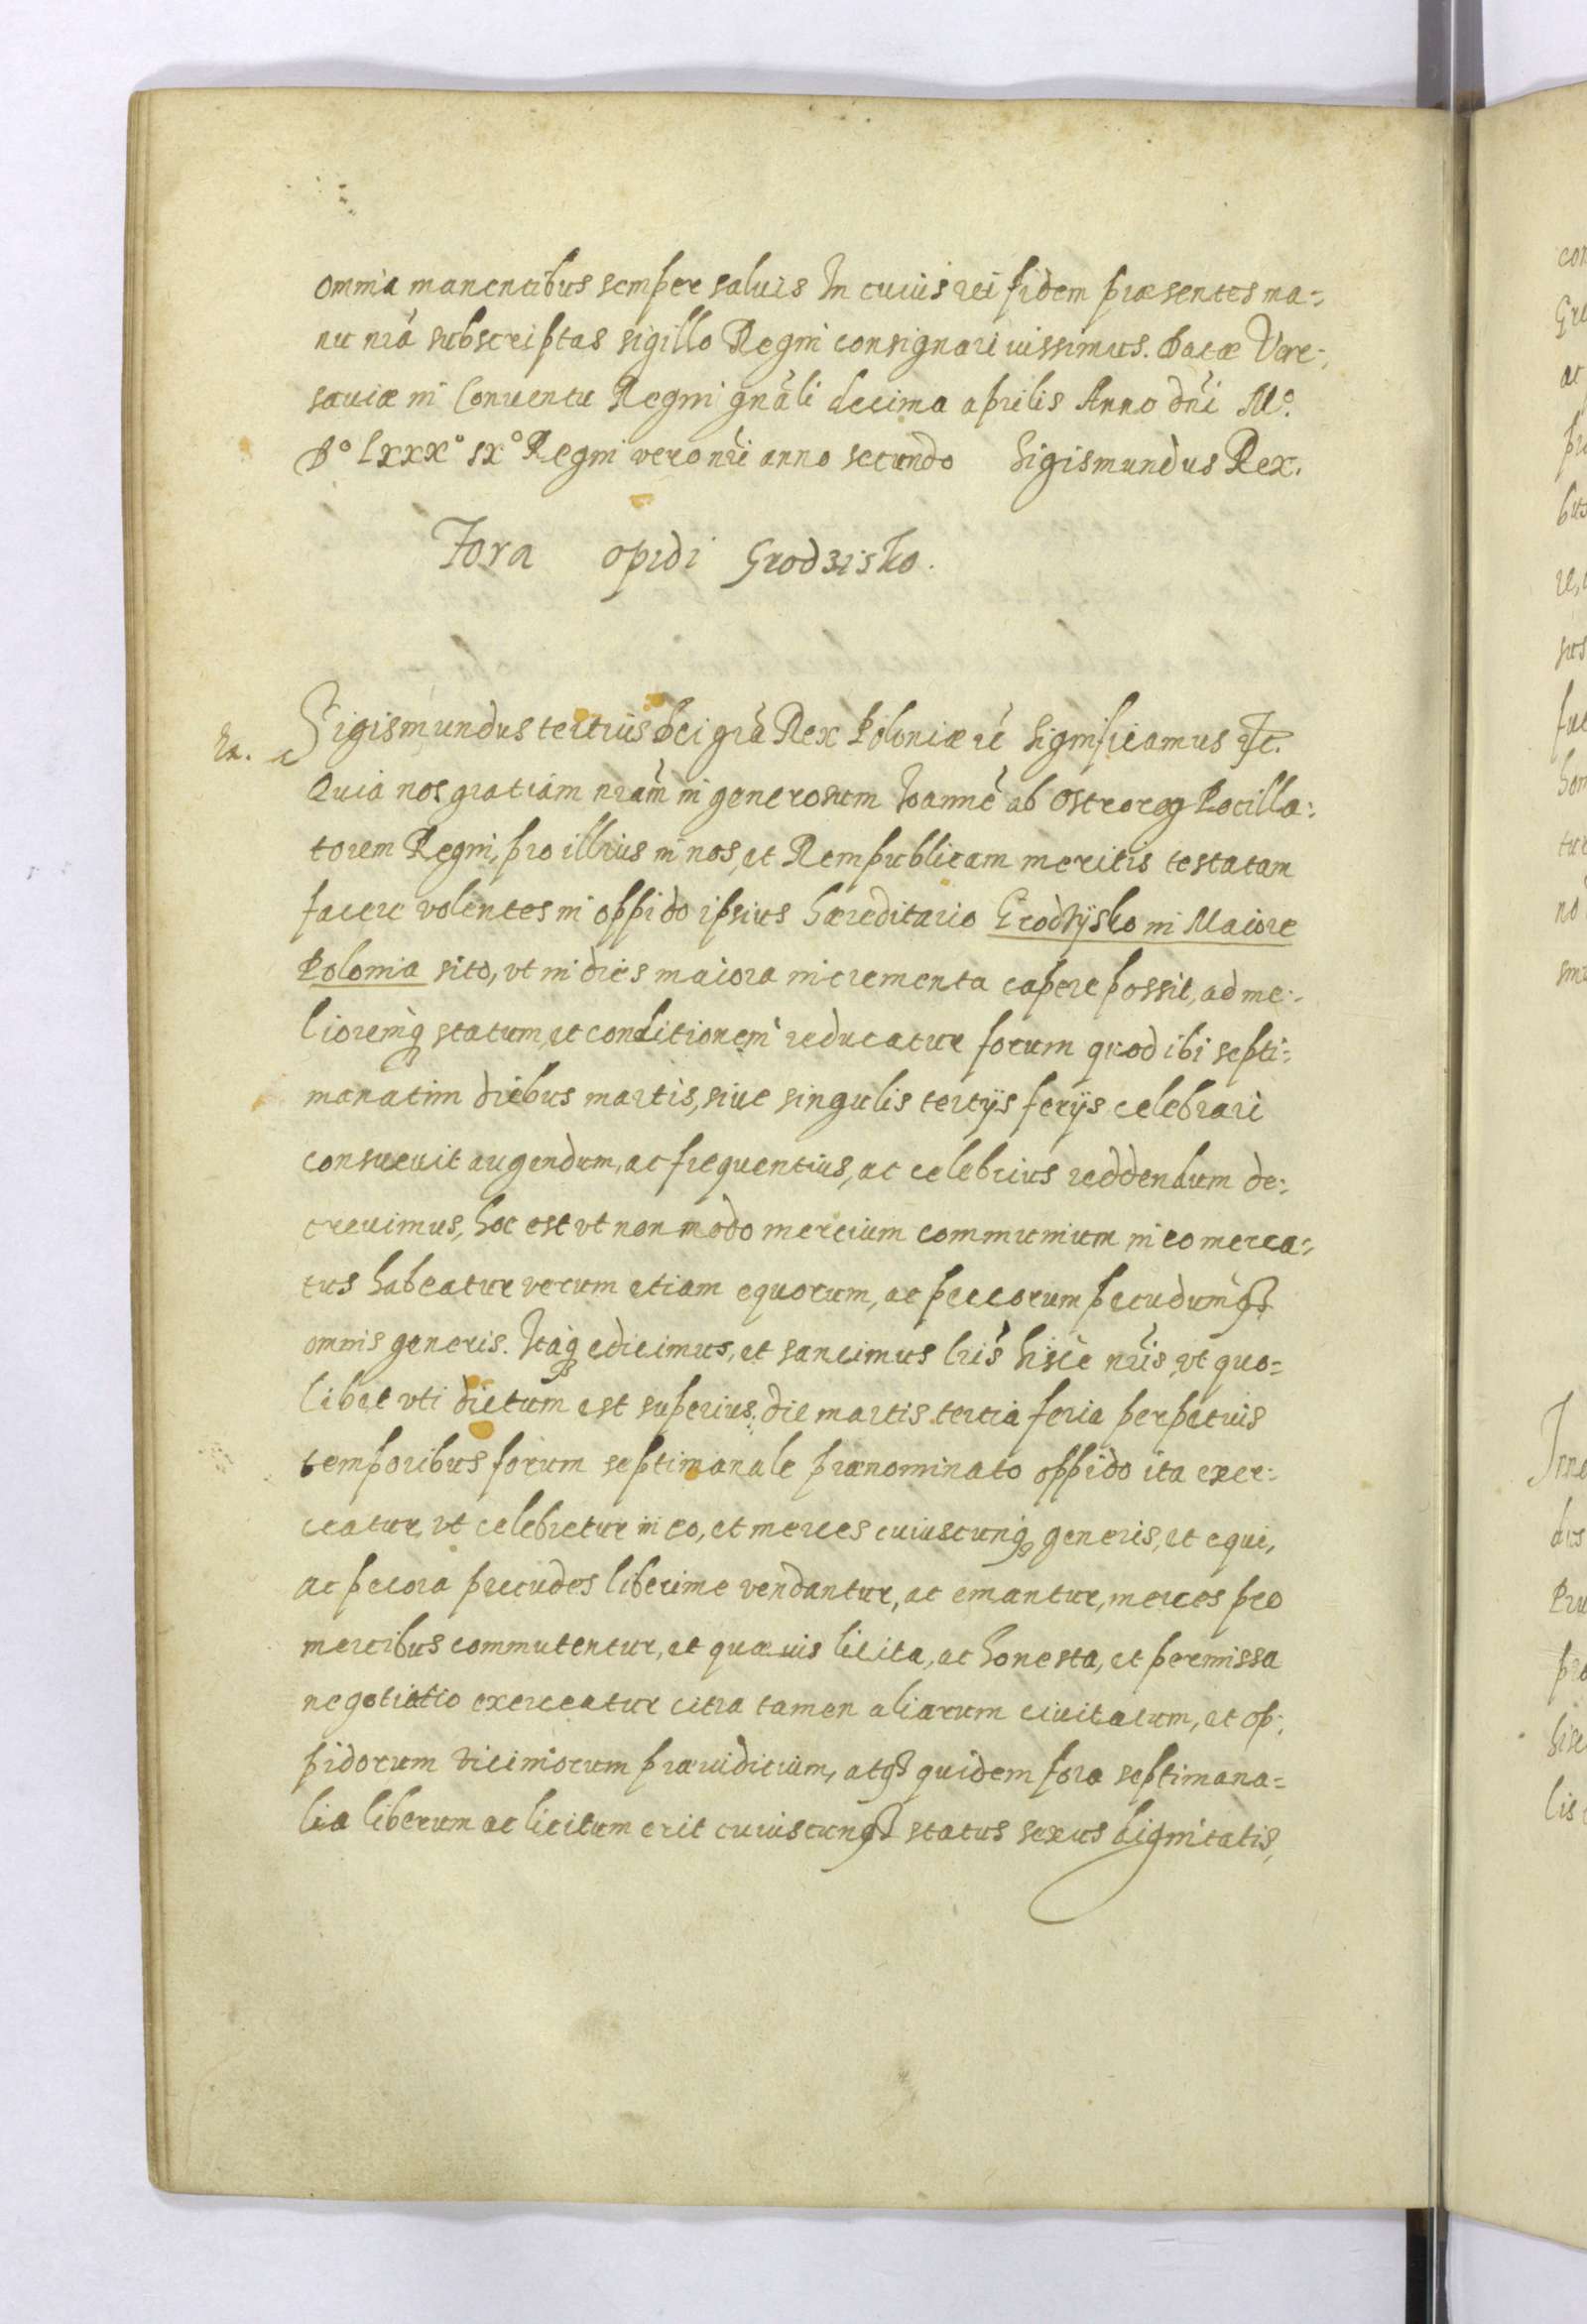 omnia manentibus semper saluis In cuius rei fidem præsentes ma=
nu nrã subscriptas sigillo Regni consignari iussimus. Datæ Var=
sauiæ in Conuentu Regni gnãli decima aprilis Anno dñi Mº.
Dº lxxxº ixº Regni vero nri anno secundo Sigismundus Rex.
Fora opidi Grodzisko.
Ex. Sigismundus tertius Dei grã Rex Poloniæ Significamus etc.
Quia nos gratiam nram in generosum Ioannẽ ab Ostrorog Pocilla=
torem Regni, pro illius in nos, et Rempublicam meritis testatam
facere volentes in oppido ipsius hæreditario Grodzysko in Maiore
Polonia sito, vt in dies maiora incrementa capere possit, ad me=
lioremq statum, et conditionem reducatur forum quod ibi septi=
manatim diebus martis, siue singulis tertijs ferijs celebrari
consueuit augendum, ac frequentius, ac celebrius reddendum de=
creuimus, hoc est vt non modo mercium communium in eo merca=
tus habeatur verum etiam equorum, ac peccorum pecudumq
omnis generis. Itaq edicimus, et sancimus lris hisce nris, vt quo=
libet vti dictum est superius die martis tertia feria perpetuis
temporibus forum septimanale prænominato oppido ita exer=
ceatur, vt celebretur in eo, et merces cuiuscunq generis, et equi,
ac pecora pecudes liberime vendantur, ac emantur, merces pro
mercibus commutentur, et quæuis licita, ac honesta, et permissa
negotiatio exerceatur citra tamen aliarum ciuitatum, et op=
pidorum viciniorum præiudicium, atq quidem fora septimana=
lia liberum ac licitum erit cuiuscunq status sexus dignitatis,